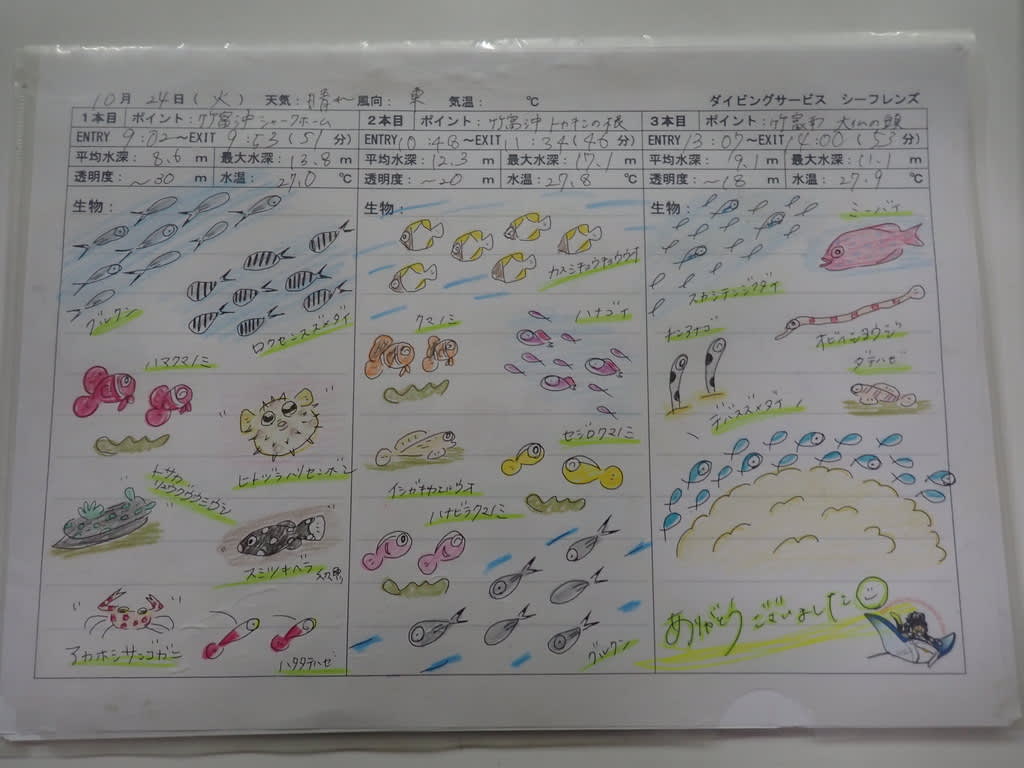 10月 24日(火) 天気: 晴れ 風向: 東 気温: ℃ ダイビングサービス シーフレンズ
1本目 ポイント: 竹富沖 シャークホーム
ENTRY 9:02~EXIT 9:53(51分)
平均水深: 8.6 m 最大水深: 13.8 m
透明度: ~30 m 水温: 27.0 ℃
生物:
グルクン
ロクセンスズメダイ
ハマクマノミ
ヒトヅラハリセンボン
トサカ
リュウグウウミウシ
スミツキベラ
アカホシサンゴガニ
ハタタテハゼ
2本目 ポイント: 竹富沖 トカキンの根
ENTRY 10:48~EXIT 11:34(46分)
平均水深: 12.3 m 最大水深: 17.1 m
透明度: ~20 m 水温: 27.8 ℃
生物:
カスミチョウチョウウオ
クマノミ
ハナゴイ
セジロクマノミ
イシガキカエルウオ
ハナビラクマノミ
グルクン
3本目 ポイント: 竹富沖 大仏の頭
ENTRY 13:07~EXIT 14:00(53分)
平均水深: 9.1 m 最大水深: 11.1 m
透明度: ~18 m 水温: 27.9 ℃
生物:
ミーバイ
スカシテンジクダイ
オビイシヨウジ
チンアナゴ
ダテハゼ
デバスズメダイ
ありがとうございました